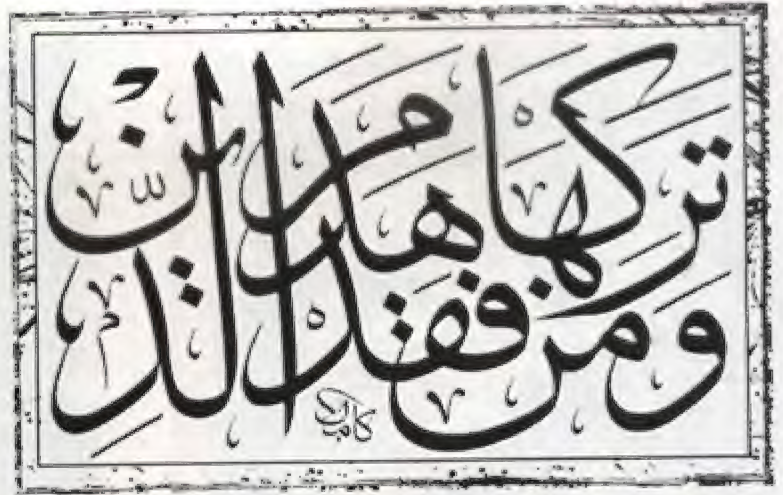 ومن تركها فقد هدم الدين